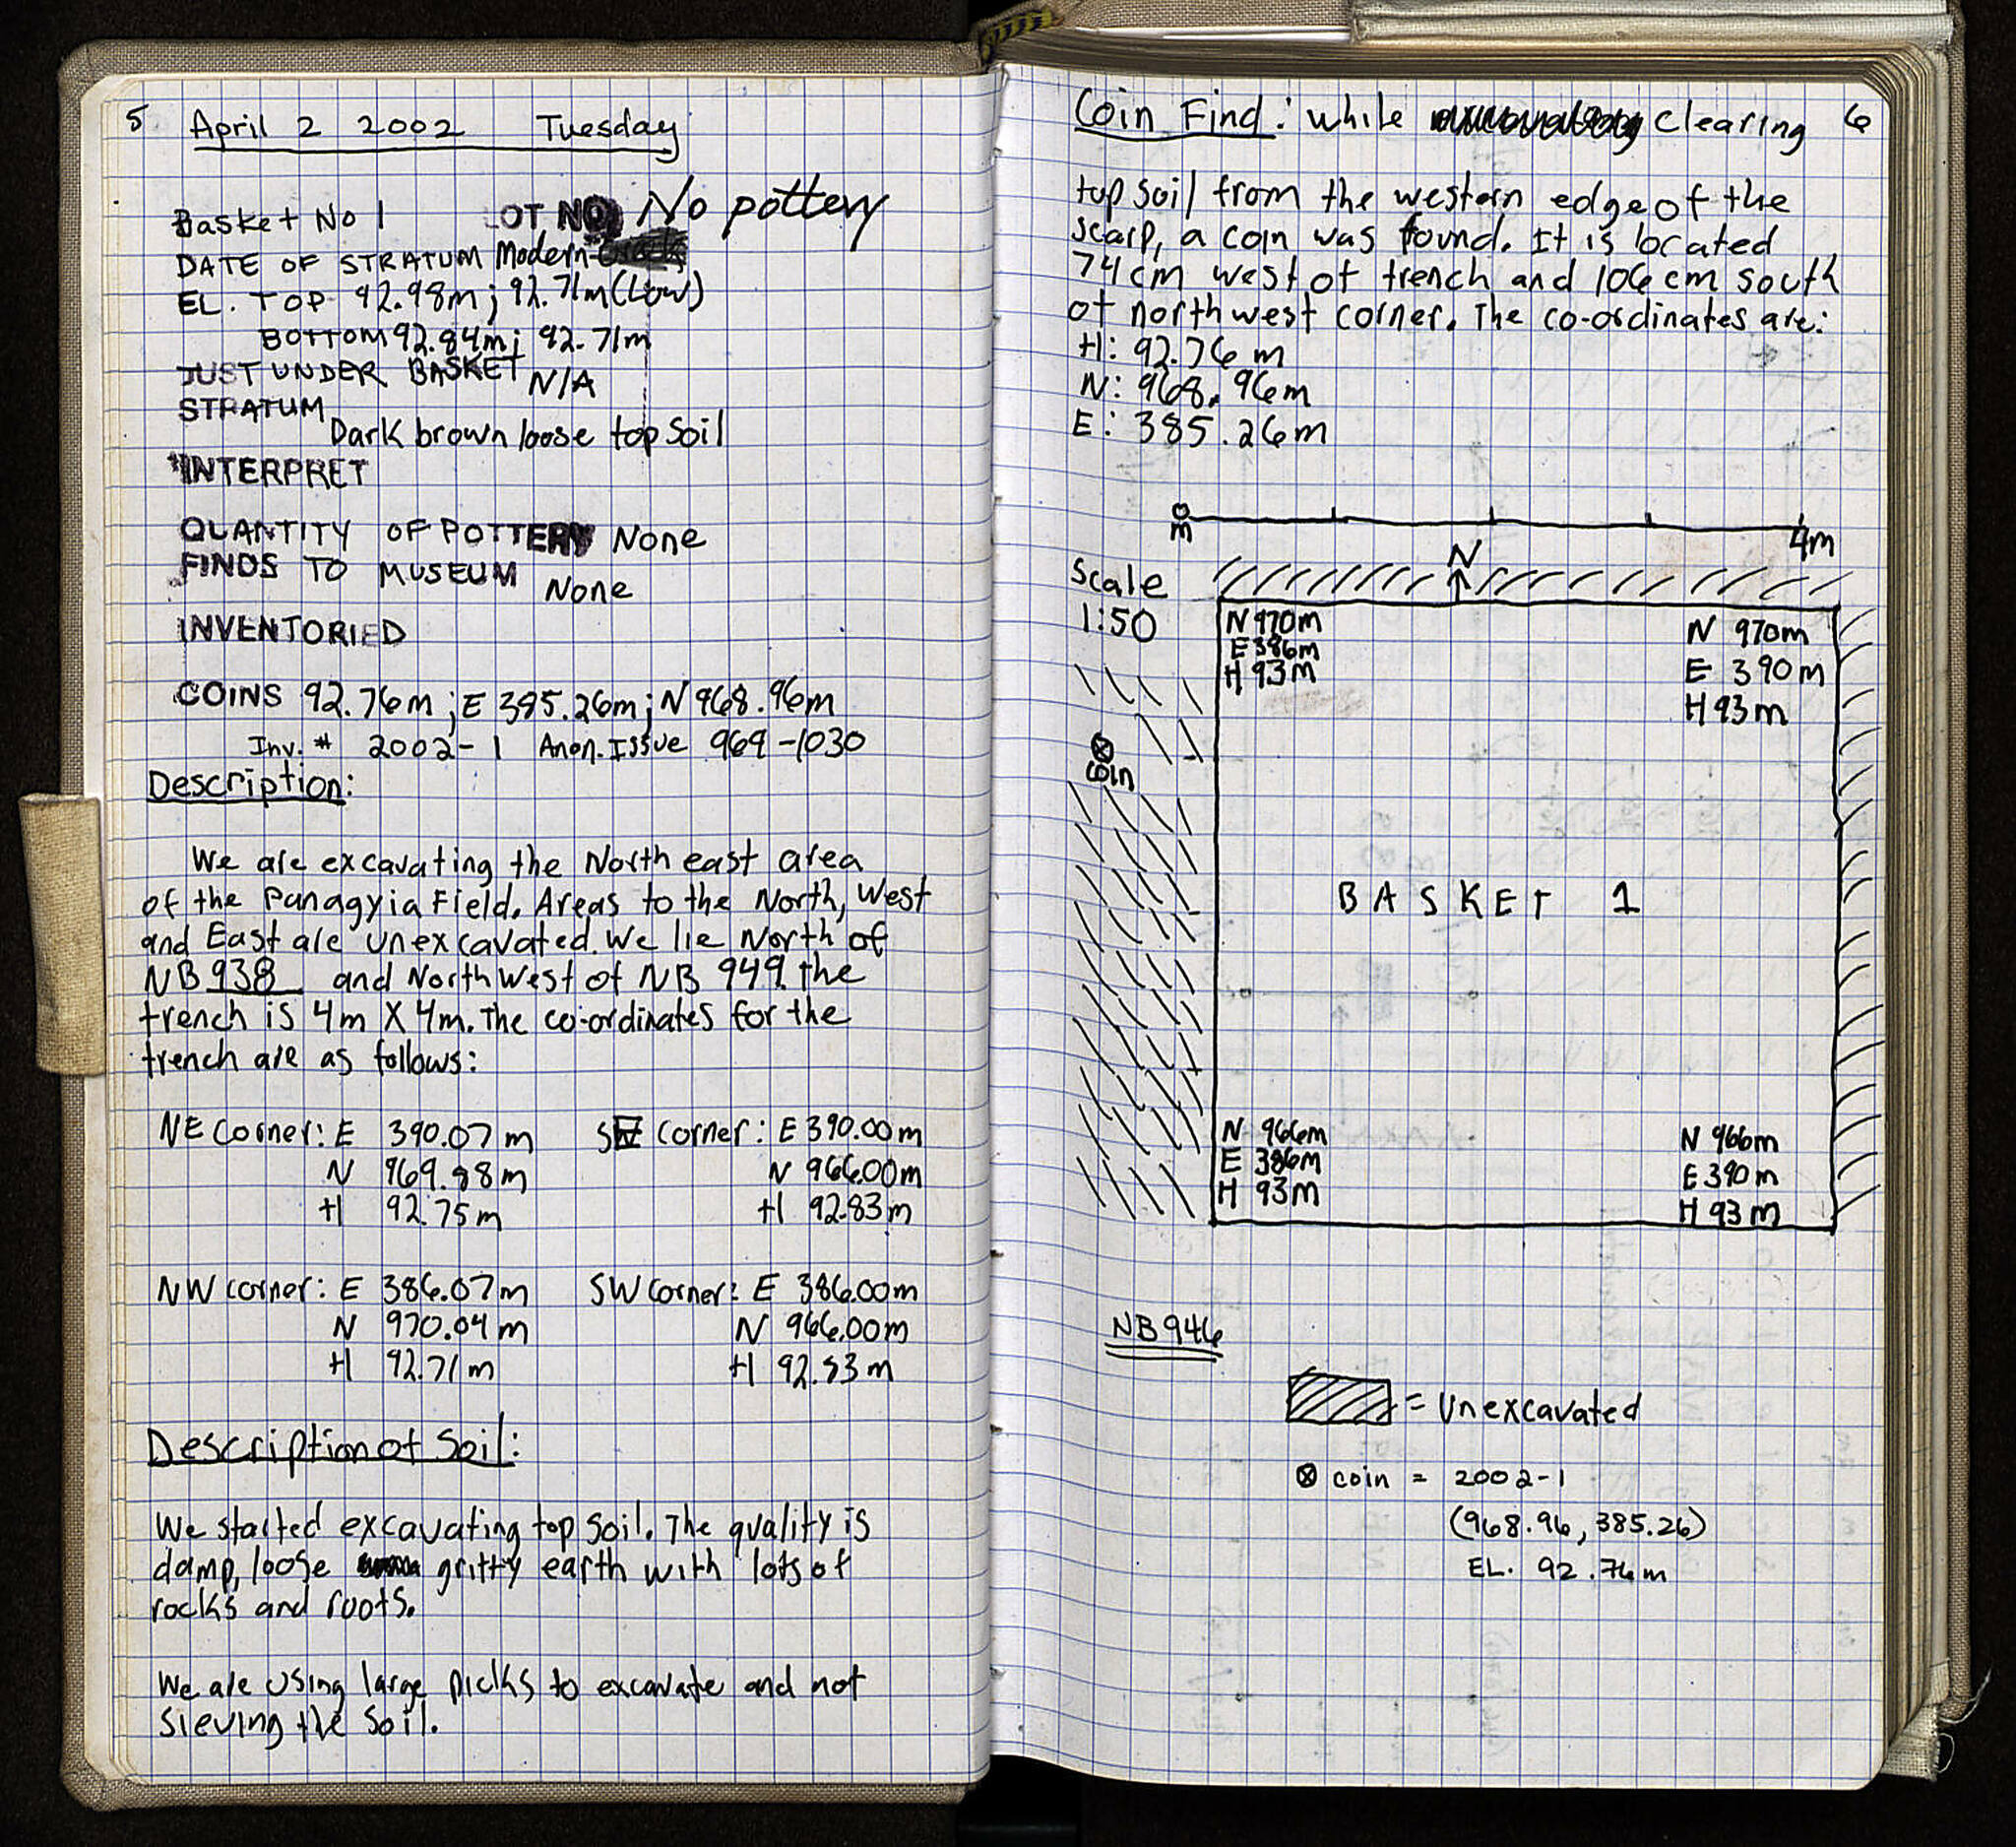 5 April 2 2002 Tuesday
Basket No 1 LOT NO No pottery
DATE OF STRATUM Modern
EL. TOP 92.98m; 92.71m (Low)
BOTTOM 92.84m; 92.71m
JUST UNDER BASKET N/A
STRATUM
Dark brown loose top soil
INTERPRET
QUANTITY OF POTTERY None
FINDS TO MUSEUM None
INVENTORIED
COINS 92.76m; E 385.26m; N 968.96m
Inv. # 2002-1 Anon. Issue 969-1030
Description:
We are excavating the North east area
of the Panagyia Field. Areas to the North, West
and East are unexcavated. We lie North of
NB 938 and North West of NB 949. The
trench is 4m X 4m. The co-ordinates for the
trench are as follows:
NE Corner: E 390.07 m
N 969.98 m
H 92.75 m
SE corner: E 390.00m
N 966.00m
H 92.83 m
NW corner: E 386.07m
N 970.04 m
H 92.71 m
SW Corner: E 386.00m
N 966.00m
H 92.83 m
Description of Soil:
We started excavating top soil. The quality is
damp, loose gritty earth with lots of
rocks and roots.
We are using large picks to excavate and not
sieving the soil.
Coin Find: while clearing 6
top soil from the western edge of the
scarp, a coin was found. It is located
74cm west of trench and 106cm south
of northwest corner. The co-ordinates are:
H: 92.76 m
N: 968.96m
E: 385.26m
0 m 4m
N
Scale
1:50
N 970m
E 386m
H 93m
N 970m
E 390m
H 93m
coin
BASKET 1
N 966m
E 386m
H 93m
N 966m
E 390m
H 93m
NB 946
= Unexcavated
⊗ coin = 2002-1
(968.96, 385.26)
EL. 92.76m